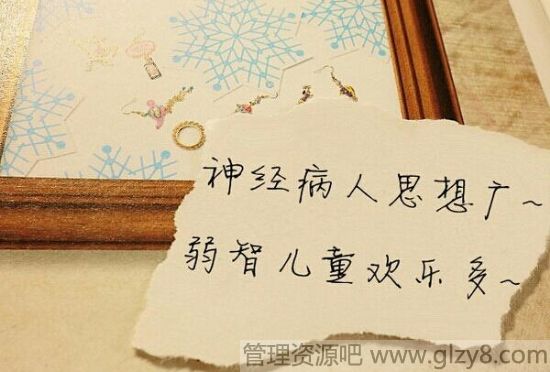 神经病人思想广~
弱智儿童欢乐多~
管理资源吧 www.glzy8.com